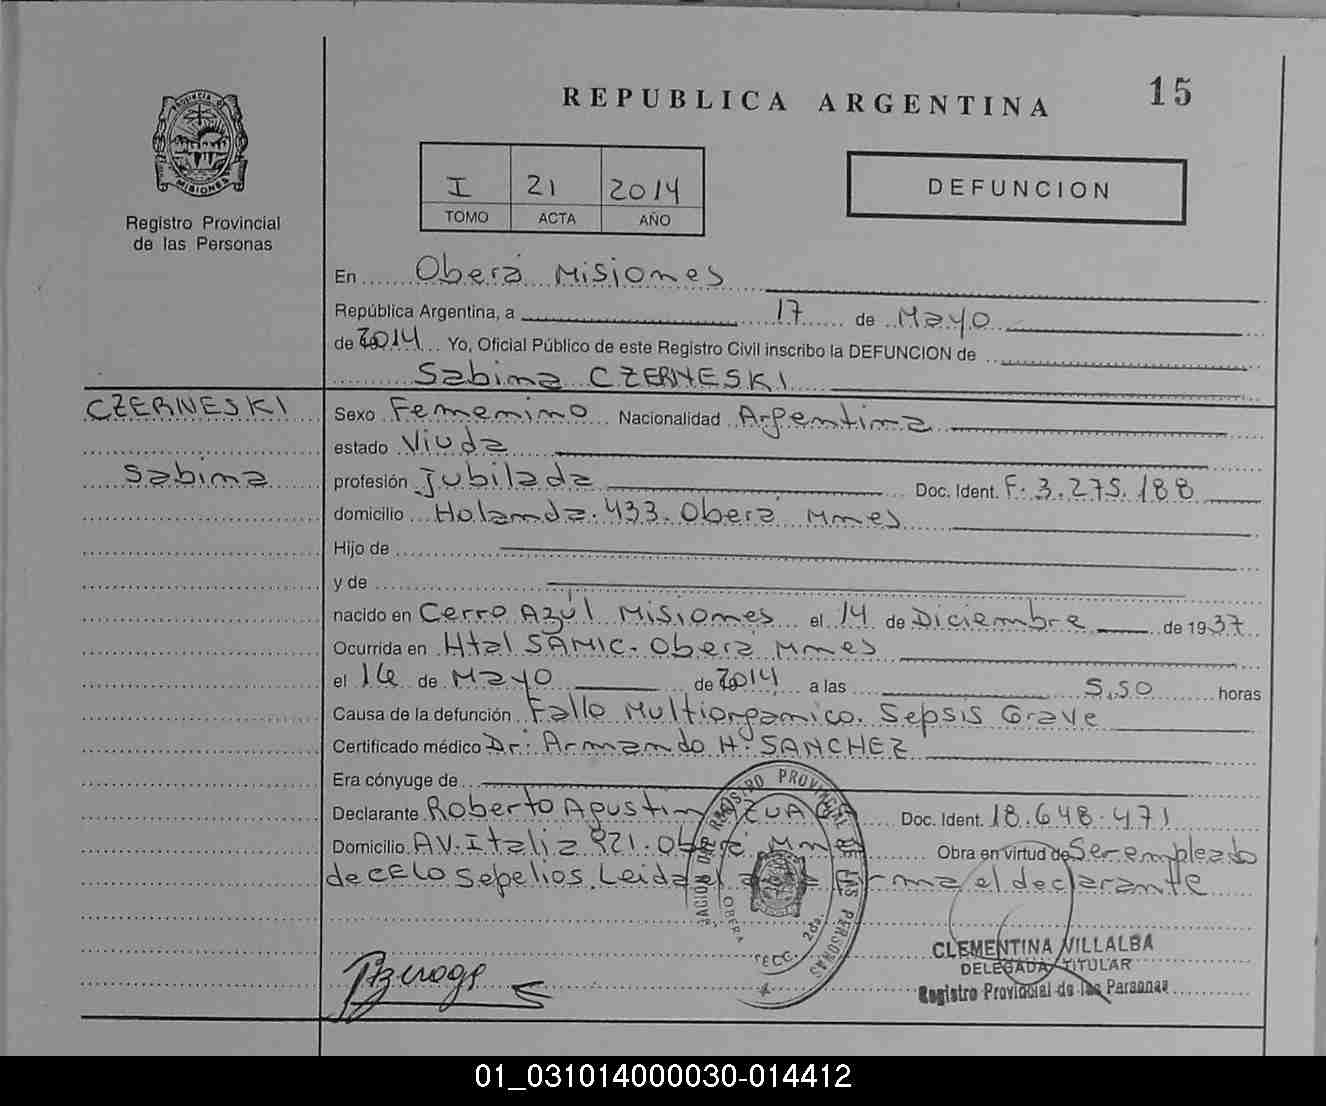 15
REPUBLICA ARGENTINA
PROVINCIA DE
MISIONES
Registro Provincial
de las Personas
I 21 2014
TOMO ACTA AÑO
DEFUNCION
En Oberá Misiones
República Argentina, a 17 de Mayo
de 2014 Yo, Oficial Público de este Registro Civil inscribo la DEFUNCION de
Sabina CZERNESKI
CZERNESKI
Sabina
Sexo Femenino Nacionalidad Argentina
estado Viuda
profesión Jubilada Doc. Ident. F. 3.275.188
domicilio Holanda. 433. Oberá Mnes
Hijo de
y de
nacido en Cerro Azúl Misiones el 14 de Diciembre de 1937
Ocurrida en Htal SAMIC. Oberá Mnes
el 16 de Mayo de 2014 a las 5,50 horas
Causa de la defunción Fallo Multiorganico. Sepsis Grave
Certificado médico Dr. Armando H. SANCHEZ
Era cónyuge de
Declarante Roberto Agustin Doc. Ident. 18.648.471
Domicilio AV. Italia 921. Obra en virtud de Ser empleado
de CELO Sepelios. Leida el declarante
REGISTRO PROVINCIAL DE LAS PERSONAS
OBERA
SECC. 2da.
CLEMENTINA VILLALBA
DELEGADA TITULAR
Registro Provincial de las Personas
01_031014000030-014412